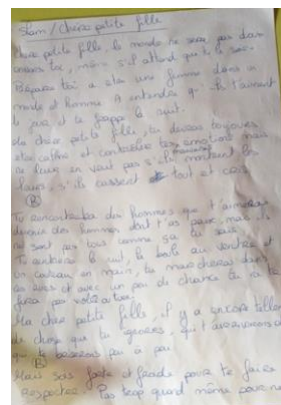 Slam / chère petite fille
Chère petite fille, le monde ne sera pas doux
envers toi, même s'il attend que tu le sois
Prépare toi à être une femme dans un
monde d'homme A entendre qu'ils t'aiment
le jour et te frappe la nuit.
Ma chère petite fille, tu devras toujours
être calme et contrôler tes émotions mais
ne leur en veut pas s'ils montrent les
leurs, s'ils cassent tout et cris
(R)
Tu rencontreras des hommes qui t'aimeront
devant des hommes dont t'as peur, mais ils
ne sont pas tous comme ça tu sais
Tu rentrera la nuit, la boule au ventre et
un couteau en main, tu marcheras dans
les rues et avec un peu de chance tu ne te
fera pas
Ma cher petite fille, il y a encore tellement
de chose que tu ignores, qui t'
qui te peu à peu
(R)
Mais sois forte et froide pour te faire
Respecter. Pas trop quand même pour ne